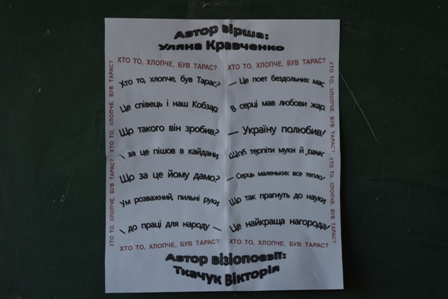 Автор вірша:
Уляна Кравченко
ХТО ТО, ХЛОПЧЕ, БУВ ТАРАС? ХТО ТО, ХЛОПЧЕ, БУВ ТАРАС?
Хто то, хлопче, був Тарас? — Це поет бездольних мас
Це співець і наш Кобзар В серці мав любови жар
Що такого він зробив? — Україну полюбив!
І за це пішов в кайдани Щоб терпіти муки й рани
Що за це йому дамо? — Серць маленьких все тепло
Ум розважний, пильні руки Що так прагнуть до науки
І до праці для народу — Це найкраща нагорода
ХТО ТО, ХЛОПЧЕ, БУВ ТАРАС? ХТО ТО, ХЛОПЧЕ, БУВ ТАРАС?
ХТО ТО, ХЛОПЧЕ, БУВ ТАРАС? ХТО ТО, ХЛОПЧЕ, БУВ ТАРАС?
ХТО ТО, ХЛОПЧЕ, БУВ ТАРАС? ХТО ТО, ХЛОПЧЕ, БУВ ТАРАС?
Автор візіопоезії:
Ткачук Вікторія